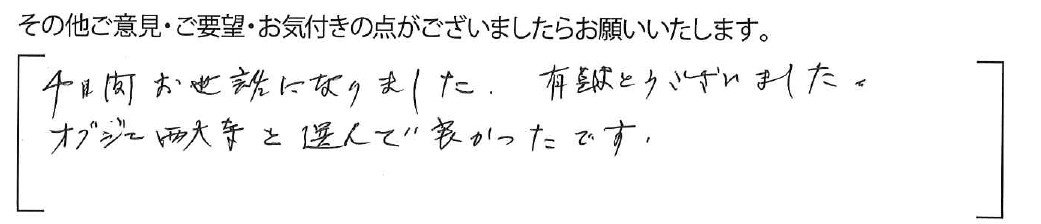 その他ご意見・ご要望・お気付きの点がございましたらお願いいたします。
4日間お世話になりました. 有難とうございました。
オブジェ西大寺を選んで良かったです.